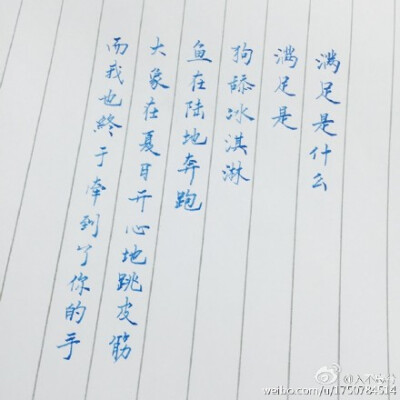 满足是什么
满足是
狗舔冰淇淋
鱼在陆地奔跑
大象在夏日开心地跳皮筋
而我也終于牵到了你的手
weibo.com/u/1750784514